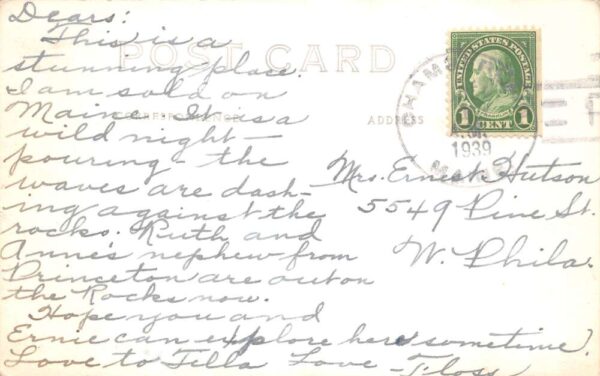 Dears:
This is a
stunning place.
I am sold on
Maine. It is a
wild night –
pouring – the
waves are dash-
ing against the
rocks. Ruth and
Anne's nephew from
Princeton are out on
the Rocks now.
Hope you and
Ernie can explore here sometime.
Love to Tilla Love – Floss
POST CARD
CORRESPONDENCE
ADDRESS
UNITED STATES POSTAGE
FRANKLIN
1 CENT 1
1939
Mrs. Ernest Hutson
5549 Pine St.
W. Phila.